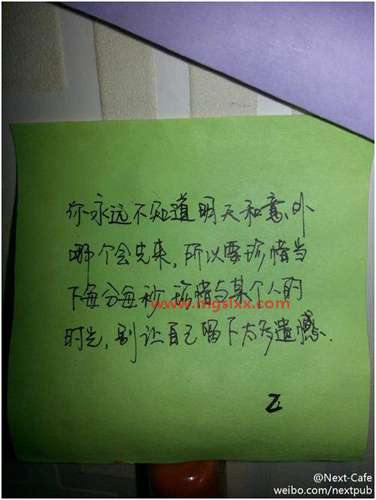 你永远不知道明天和意外
哪个会先来,所以要珍惜当
下每分每秒 珍惜与某个人的
www.mgslxx.com
时光,别让自己留下太多遗憾.
Z.
@Next-Cafe
weibo.com/nextpub